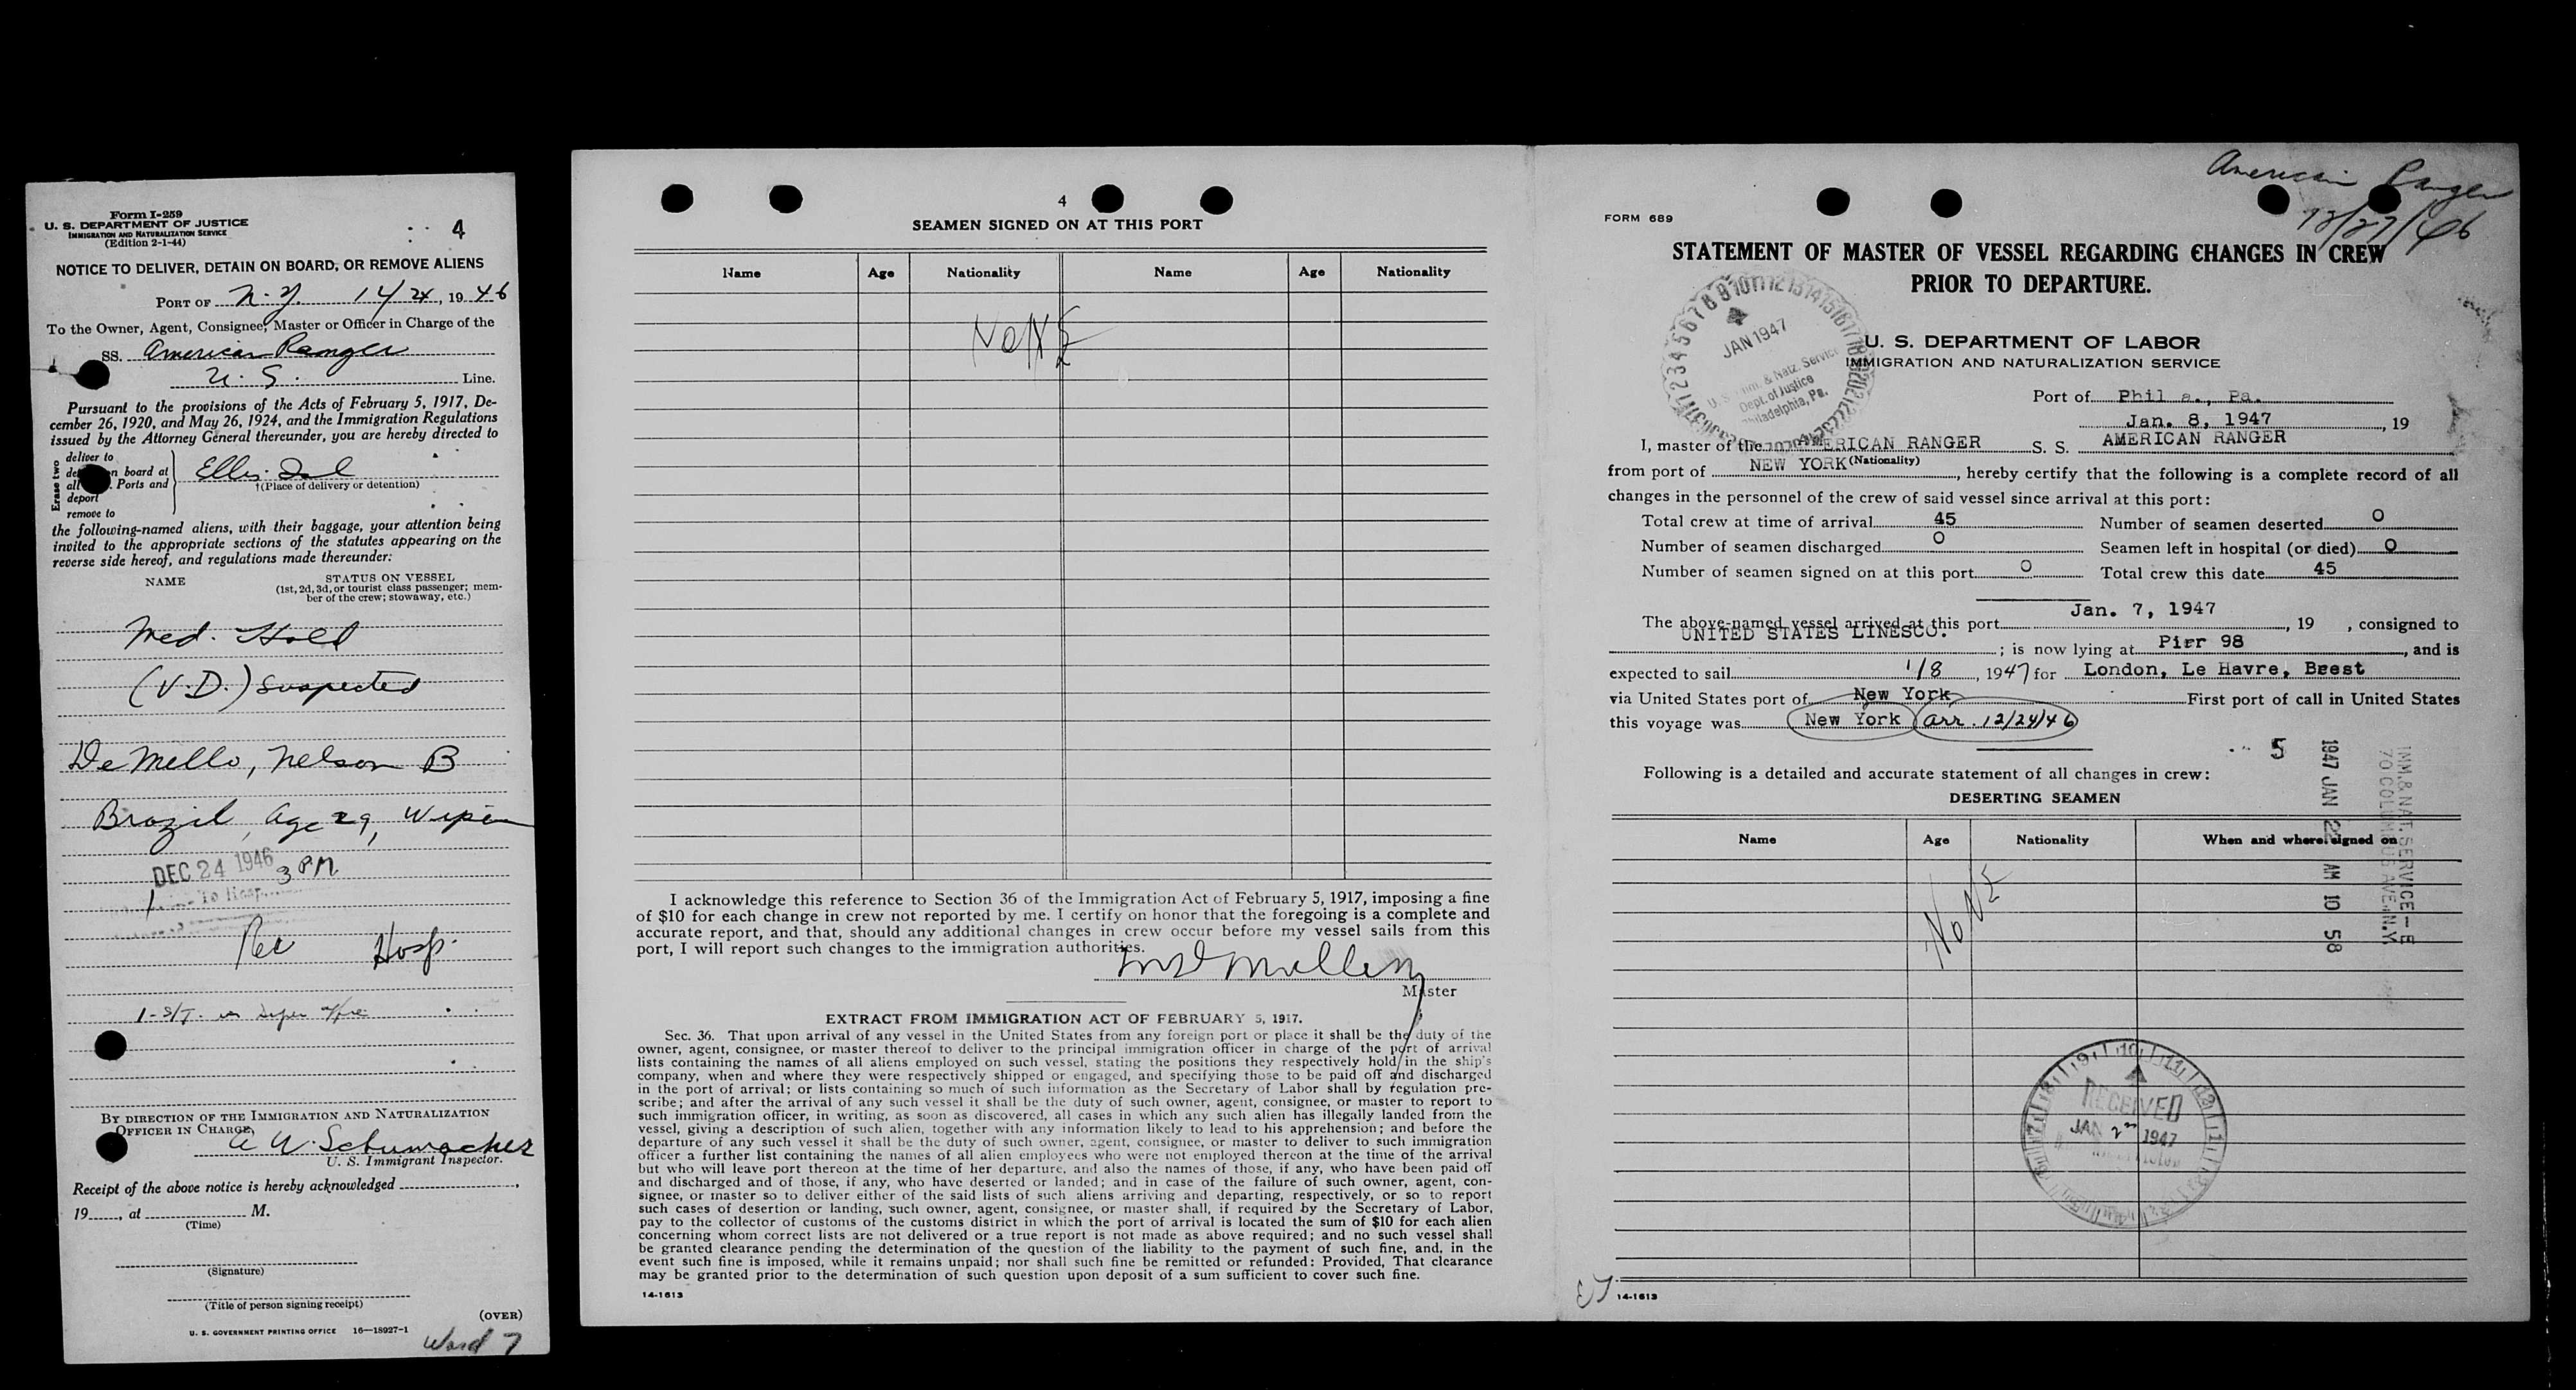 Form I-259
U. S. DEPARTMENT OF JUSTICE
IMMIGRATION AND NATURALIZATION SERVICE
(Edition 2-1-44)
4
NOTICE TO DELIVER, DETAIN ON BOARD, OR REMOVE ALIENS
PORT OF N.Y. 12/24, 1946
To the Owner, Agent, Consignee, Master or Officer in Charge of the
SS. American Ranger
U. S. Line.
Pursuant to the provisions of the Acts of February 5, 1917, De-
cember 26, 1920, and May 26, 1924, and the Immigration Regulations
issued by the Attorney General thereunder, you are hereby directed to
Erase two
deliver to
on board at
all Ports and
deport
remove to
Ellis Isl
†(Place of delivery or detention)
the following-named aliens, with their baggage, your attention being
invited to the appropriate sections of the statutes appearing on the
reverse side hereof, and regulations made thereunder:
NAME
STATUS ON VESSEL
(1st, 2d, 3d, or tourist class passenger; mem-
ber of the crew; stowaway, etc.)
Med. Hold
(V.D.) Suspected
De Mello, Nelson B
Brazil, Age 29, Wiper
DEC 24 1946 3 PM
To Hosp.
Rec Hosp.
BY DIRECTION OF THE IMMIGRATION AND NATURALIZATION
OFFICER IN CHARGE,
A W. Schumacher
U. S. Immigrant Inspector.
Receipt of the above notice is hereby acknowledged ,
19 , at M.
(Time)
(Signature)
(Title of person signing receipt)
(OVER)
U. S. GOVERNMENT PRINTING OFFICE 16—18927-1
Ward 7
4
SEAMEN SIGNED ON AT THIS PORT
Name Age Nationality Name Age Nationality
NONE
I acknowledge this reference to Section 36 of the Immigration Act of February 5, 1917, imposing a fine
of $10 for each change in crew not reported by me. I certify on honor that the foregoing is a complete and
accurate report, and that, should any additional changes in crew occur before my vessel sails from this
port, I will report such changes to the immigration authorities.
Master
EXTRACT FROM IMMIGRATION ACT OF FEBRUARY 5, 1917.
Sec. 36. That upon arrival of any vessel in the United States from any foreign port or place it shall be the duty of the
owner, agent, consignee, or master thereof to deliver to the principal immigration officer in charge of the port of arrival
lists containing the names of all aliens employed on such vessel, stating the positions they respectively hold in the ship's
company, when and where they were respectively shipped or engaged, and specifying those to be paid off and discharged
in the port of arrival; or lists containing so much of such information as the Secretary of Labor shall by regulation pre-
scribe; and after the arrival of any such vessel it shall be the duty of such owner, agent, consignee, or master to report to
such immigration officer, in writing, as soon as discovered, all cases in which any such alien has illegally landed from the
vessel, giving a description of such alien, together with any information likely to lead to his apprehension; and before the
departure of any such vessel it shall be the duty of such owner, agent, consignee, or master to deliver to such immigration
officer a further list containing the names of all alien employees who were not employed thereon at the time of the arrival
but who will leave port thereon at the time of her departure, and also the names of those, if any, who have been paid off
and discharged and of those, if any, who have deserted or landed; and in case of the failure of such owner, agent, con-
signee, or master so to deliver either of the said lists of such aliens arriving and departing, respectively, or so to report
such cases of desertion or landing, such owner, agent, consignee, or master shall, if required by the Secretary of Labor,
pay to the collector of customs of the customs district in which the port of arrival is located the sum of $10 for each alien
concerning whom correct lists are not delivered or a true report is not made as above required; and no such vessel shall
be granted clearance pending the determination of the question of the liability to the payment of such fine, and, in the
event such fine is imposed, while it remains unpaid; nor shall such fine be remitted or refunded: Provided, That clearance
may be granted prior to the determination of such question upon deposit of a sum sufficient to cover such fine.
14-1613
American Ranger
12/27/46
FORM 689
STATEMENT OF MASTER OF VESSEL REGARDING CHANGES IN CREW
PRIOR TO DEPARTURE.
JAN 1947
U. S. Imm. & Natz. Service
Dept. of Justice
Philadelphia, Pa.
U. S. DEPARTMENT OF LABOR
IMMIGRATION AND NATURALIZATION SERVICE
Port of Phil a., Pa.
Jan. 8, 1947, 19
I, master of the AMERICAN RANGER S. S. AMERICAN RANGER
(Nationality)
from port of NEW YORK, hereby certify that the following is a complete record of all
changes in the personnel of the crew of said vessel since arrival at this port:
Total crew at time of arrival 45 Number of seamen deserted 0
Number of seamen discharged 0 Seamen left in hospital (or died) 0
Number of seamen signed on at this port 0 Total crew this date 45
The above-named vessel arrived at this port Jan. 7, 1947, 19 , consigned to
UNITED STATES LINESCO. ; is now lying at Pirr 98, and is
expected to sail 1/8, 1947 for London, Le Havre, Brest
via United States port of New York First port of call in United States
this voyage was New York arr. 12/24/46
5
Following is a detailed and accurate statement of all changes in crew:
DESERTING SEAMEN
Name Age Nationality When and where signed on
NONE
1947 JAN 22 AM 10 58
IMM. & NAT. SERVICE—E
70 COLUMBUS AVE. N.Y.
RECEIVED
JAN 22 1947
14-1613